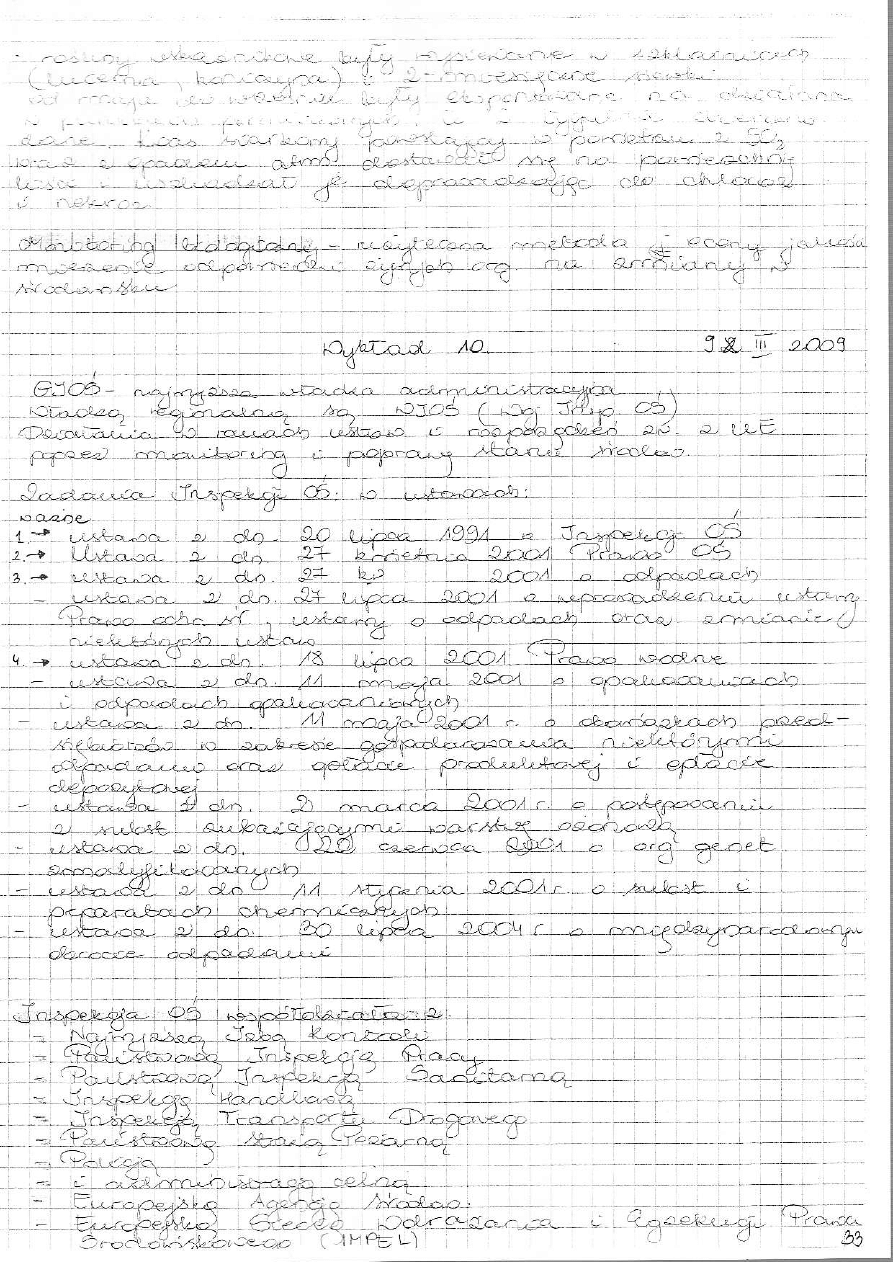 - rośliny wskaźnikowe były wysiewane w szklarniach
(lucerna, koniczyna) i 2-miesięczne siewki
od maja do września były eksponowane na działania
w
dane. Kwas siarkowy powstający w powietrzu z SO2
wraz z opadem atm. dostawał się na powierzchnię
liści i uszkadzał je doprowadzając do chloroz
i nekroz

Monitoring biologiczny - najlepsza metoda oceny jakości
odpowiedzi żyjących org. na zmiany w
środowisku

Wykład 10. III 2009
GIOŚ - najwyższa władza administracyjna
Władzą regionalną są WIOŚ (Woj. Insp. OŚ)
Działania w ramach ustaw i rozporządzeń zw. z UE
poprzez monitoring i poprawę stanu środow.
Zadania Inspekcji OŚ: w ustawach:
ważne
1. → ustawa z dn. 20 lipca 1991 o Inspekcji OŚ
2. → Ustawa z dn. 27 kwietnia 2001 Prawo OŚ
3. → ustawa z dn. 27 kw 2001 o odpadach
- ustawa z dn. 27 lipca 2001 o wprowadzeniu ustawy
Prawo ochr. śr., ustawy o odpadach oraz zmianie
niektórych ustaw
4. → ustawa z dn. 18 lipca 2001 Prawo wodne
- ustawa z dn. 11 maja 2001 o opakowaniach
i odpadach opakowaniowych
- ustawa z dn. 11 maja 2001 r. o obowiązkach przed-
siębiorców w zakresie gospodarowania niektórymi
odpadami oraz opłacie produktowej i opłacie
depozytowej
- ustawa z dn. 2 marca 2001 r. o postępowaniu
z subst. zubażającymi warstwę ozonową
- ustawa z dn. 22 czerwca 2001 o org. genet.
zmodyfikowanych
- ustawa z dn. 11 stycznia 2001 r. o subst. i
preparatach chemicznych
- ustawa z dn. 30 lipca 2004 r. o międzynarodowym
obrocie odpadami

Inspekcja OŚ współdziała z:
- Najwyższą Izbą Kontroli
- Państwową Inspekcją Pracy
- Państwową Inspekcją Sanitarną
- Inspekcją Handlową
- Inspekcją Transportu Drogowego
- Państwową Strażą Pożarną
- Policją
- i administracją celną
- Europejską Agencją Środow.
- Europejską Siecią Wdrażania i Egzekucji Prawa
Środowiskowego (IMPEL)
33